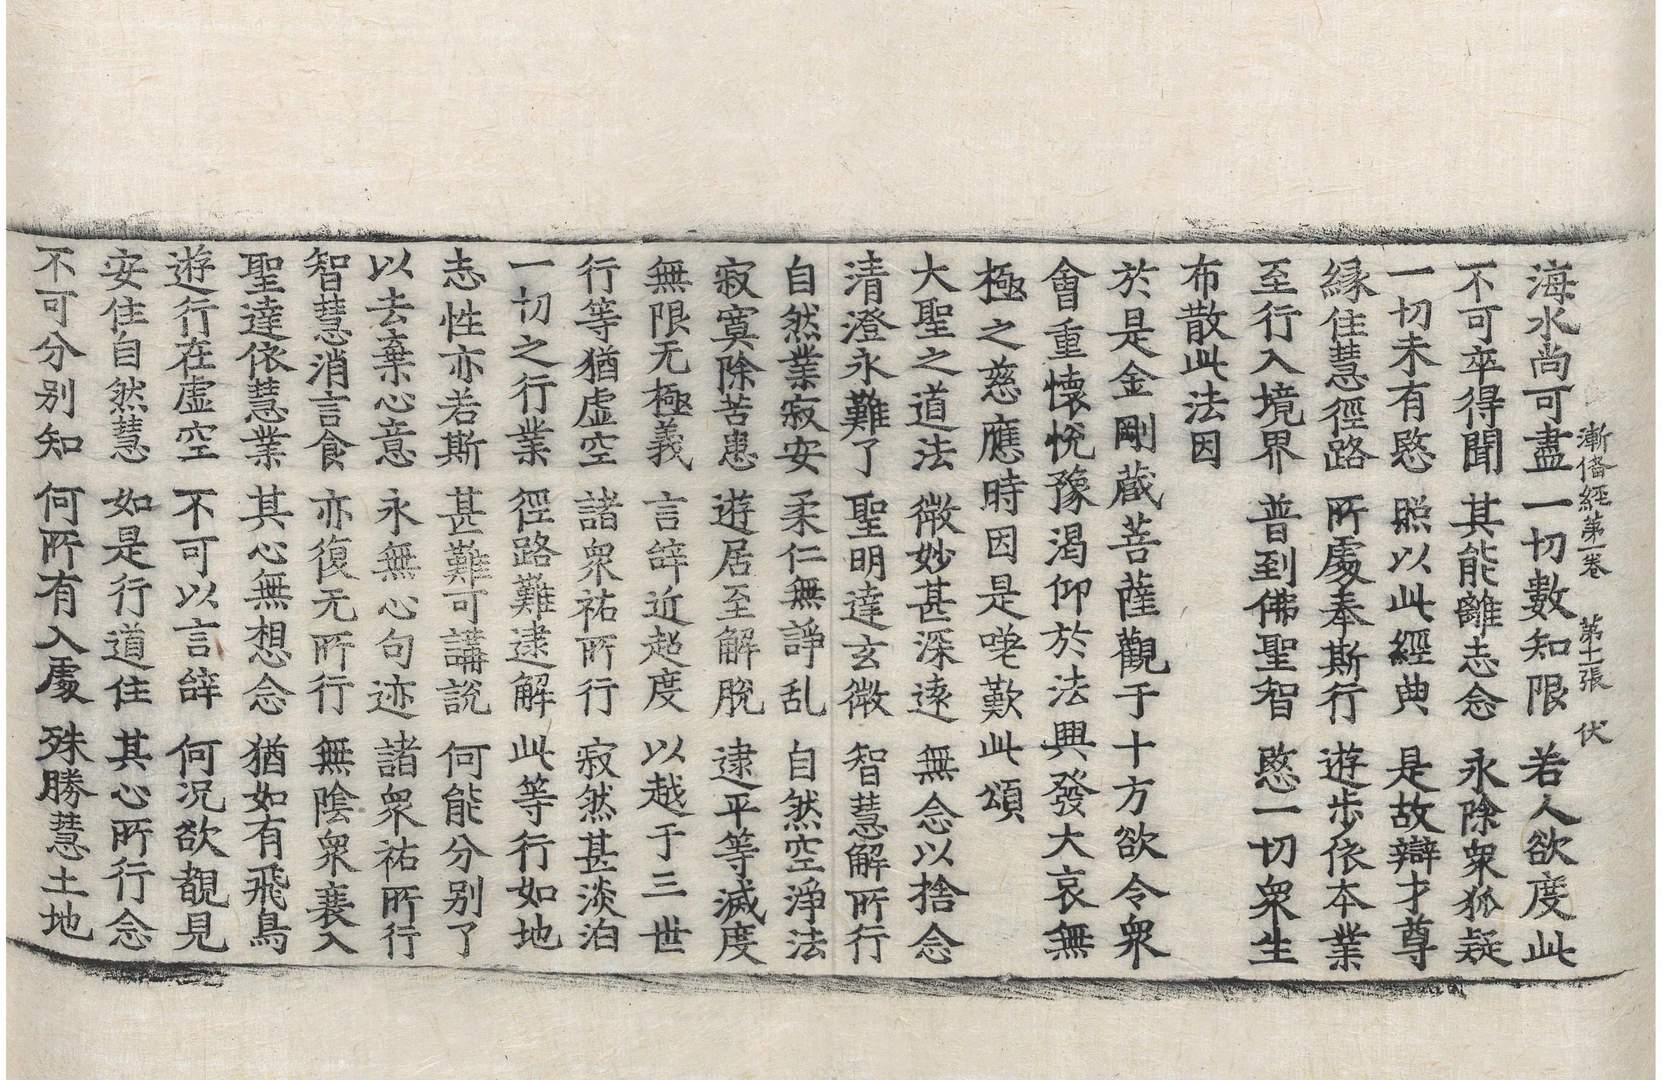 漸備經第一卷 第十二張 伏
海水尚可盡一切數知限 若人欲度此
不可卒得聞 其能離志念 永除衆狐疑
一切未有愍 照以此經典 是故辯才尊
縁住慧徑路 所處奉斯行 遊步依本業
至行入境界 普到佛聖智 愍一切衆生
布散此法因
於是金剛蔵菩薩觀于十方欲令衆
會重懐悅豫渴仰於法興發大哀無
極之慈應時因是𠷣歎此頌
大聖之道法 微妙甚深遠 無念以捨念
清澄永難了 聖明達玄微 智慧解所行
自然業寂安 柔仁無諍乱 自然空淨法
寂寞除苦患 遊居至解脫 逮平等滅度
無限无極義 言辞近超度 以越于三世
行等猶虚空 諸衆祐所行 寂然甚淡泊
一切之行業 徑路難逮解 此等行如地
志性亦若斯 甚難可講說 何能分别了
以去棄心意 永無心句迹 諸衆祐所行
智慧消言食 亦復无所行 無陰衆衰入
聖達依慧業 其心無想念 猶如有飛鳥
遊行在虚空 不可以言辞 何況欲覩見
安住自然慧 如是行道住 其心所行念
不可分别知 何所有入處 殊勝慧土地